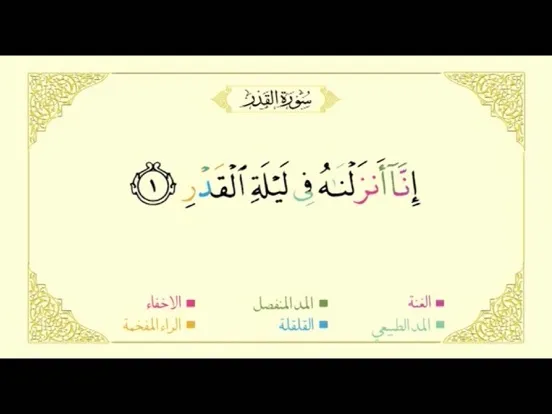 سُورَةُ القَدْرِ
إِنَّآ أَنزَلْنَٰهُ فِي لَيْلَةِ ٱلْقَدْرِ ١
الغنة المد المنفصل الاخفاء
المد الطبيعي القلقلة الراء المفخمة